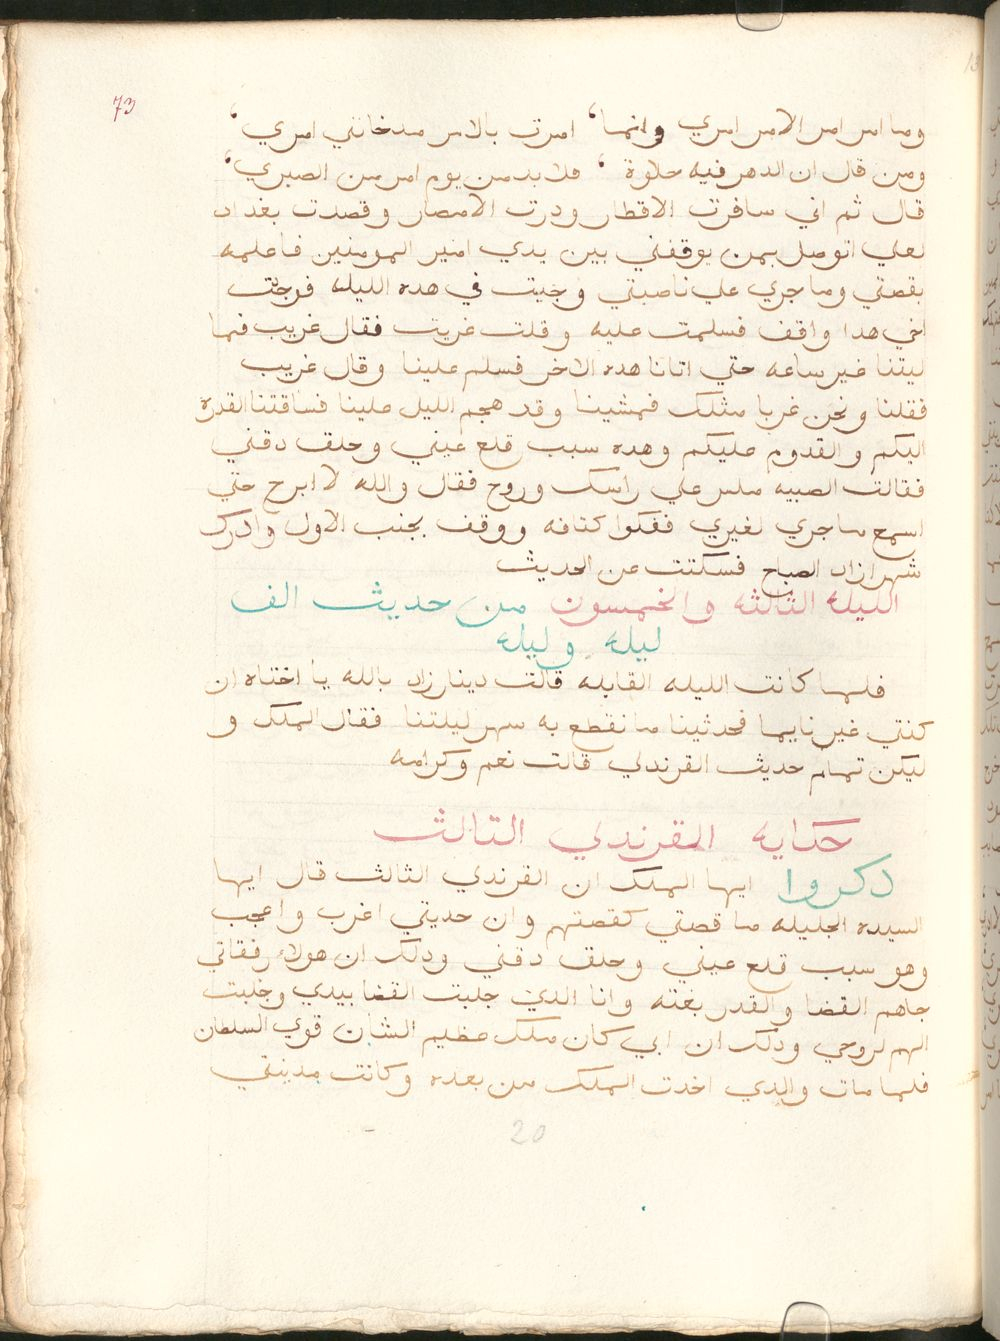 73
وما امر امر الامر امري وانما ، امرت بالامر مدخانني امري ،
ومن قال ان الدهر فيه حلاوة ، فلا بد من يوم امر من الصبري ،
قال ثم اني سافرت الاقطار ودرت الامصار وقصدت بغداد
لعلي اتوصل بمن يوقفني بين يدي امير المومنين فاعلمه
بقصتي وما جري علي ناصبتي وجيت في هده الليله فوجت
اخي هدا واقف فسلمت عليه وقلت غريت فقال غريب فما
ليتنا غير ساعه حتي اتانا هده الاخر فسلم علينا وقال غريب
فقلنا ونحن غربا مثلك فمشينا وقد هجم الليل علينا فساقتنا القدره
اليكم والقدوم عليكم وهده سبب قلع عيني وحلق دقني
فقالت الصبيه ملس علي راسك وروح فقال والله لا ابرح حتي
اسمع ما جري لغيري ففكوا كتافه ووقف بجنب الاول وادرك
شهرازاد الصباح فسكتت عن الحديث
الليله الثالثه والخمسون من حديث الف
ليله وليله
فلما كانت الليله القابله قالت دينارزاد بالله يا اختاه ان
كنتي غير نايما فحدثينا ما نقطع به سهر ليلتنا فقال الملك و
ليكن تمام حديث القرندلي قالت نعم وكرامه
حكايه القرندلي الثالث
دكروا ايها الملك ان القرندي الثالث قال ايها
السيده الجليله ما قصتي كقصتهم وان حديتي اغرب واعجب
وهو سبب قلع عيني وحلق دقني ودلك ان هولاء رفقاتي
جاهم القضا والقدر بغته وانا الدي جلبت القضا بيدي وجلبت
الهم لروحي ودلك ان ابي كان ملك عظيم الشان قوي السلطان
فلما مات والدي اخدت الملك من بعده وكانت مدينتي
20